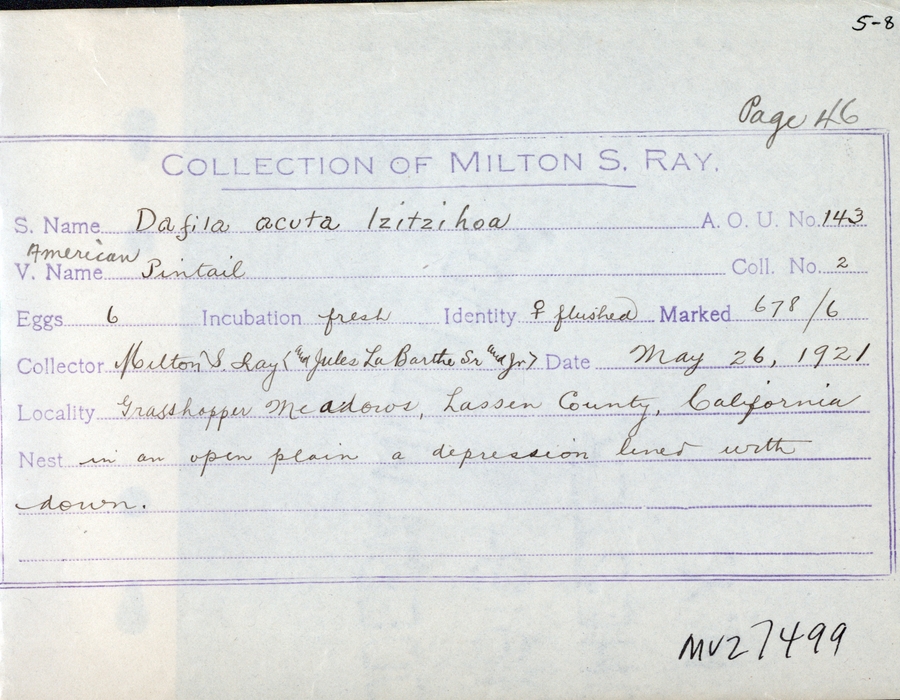 5-8
Page 46
COLLECTION OF MILTON S. RAY.
S. Name Dafila acuta tzitzihoa A. O. U. No. 143
American
V. Name Pintail Coll. No. 2
Eggs 6 Incubation fresh Identity ♀ flushed Marked 678/6
Collector Milton S Ray (and Jules La Barthe Sr and Jr) Date May 26, 1921
Locality Grasshopper Meadows, Lassen County, California
Nest in an open plain a depression lined with
down.
MVZ7499